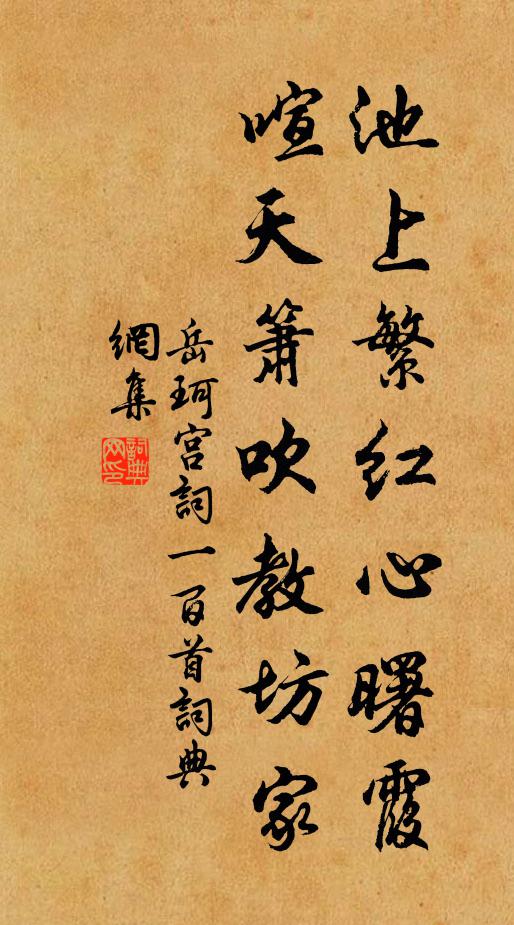 池上繁红心曙霞
喧天箫吹教坊家
岳珂宫詞一百首詞典
網集
詞典网印